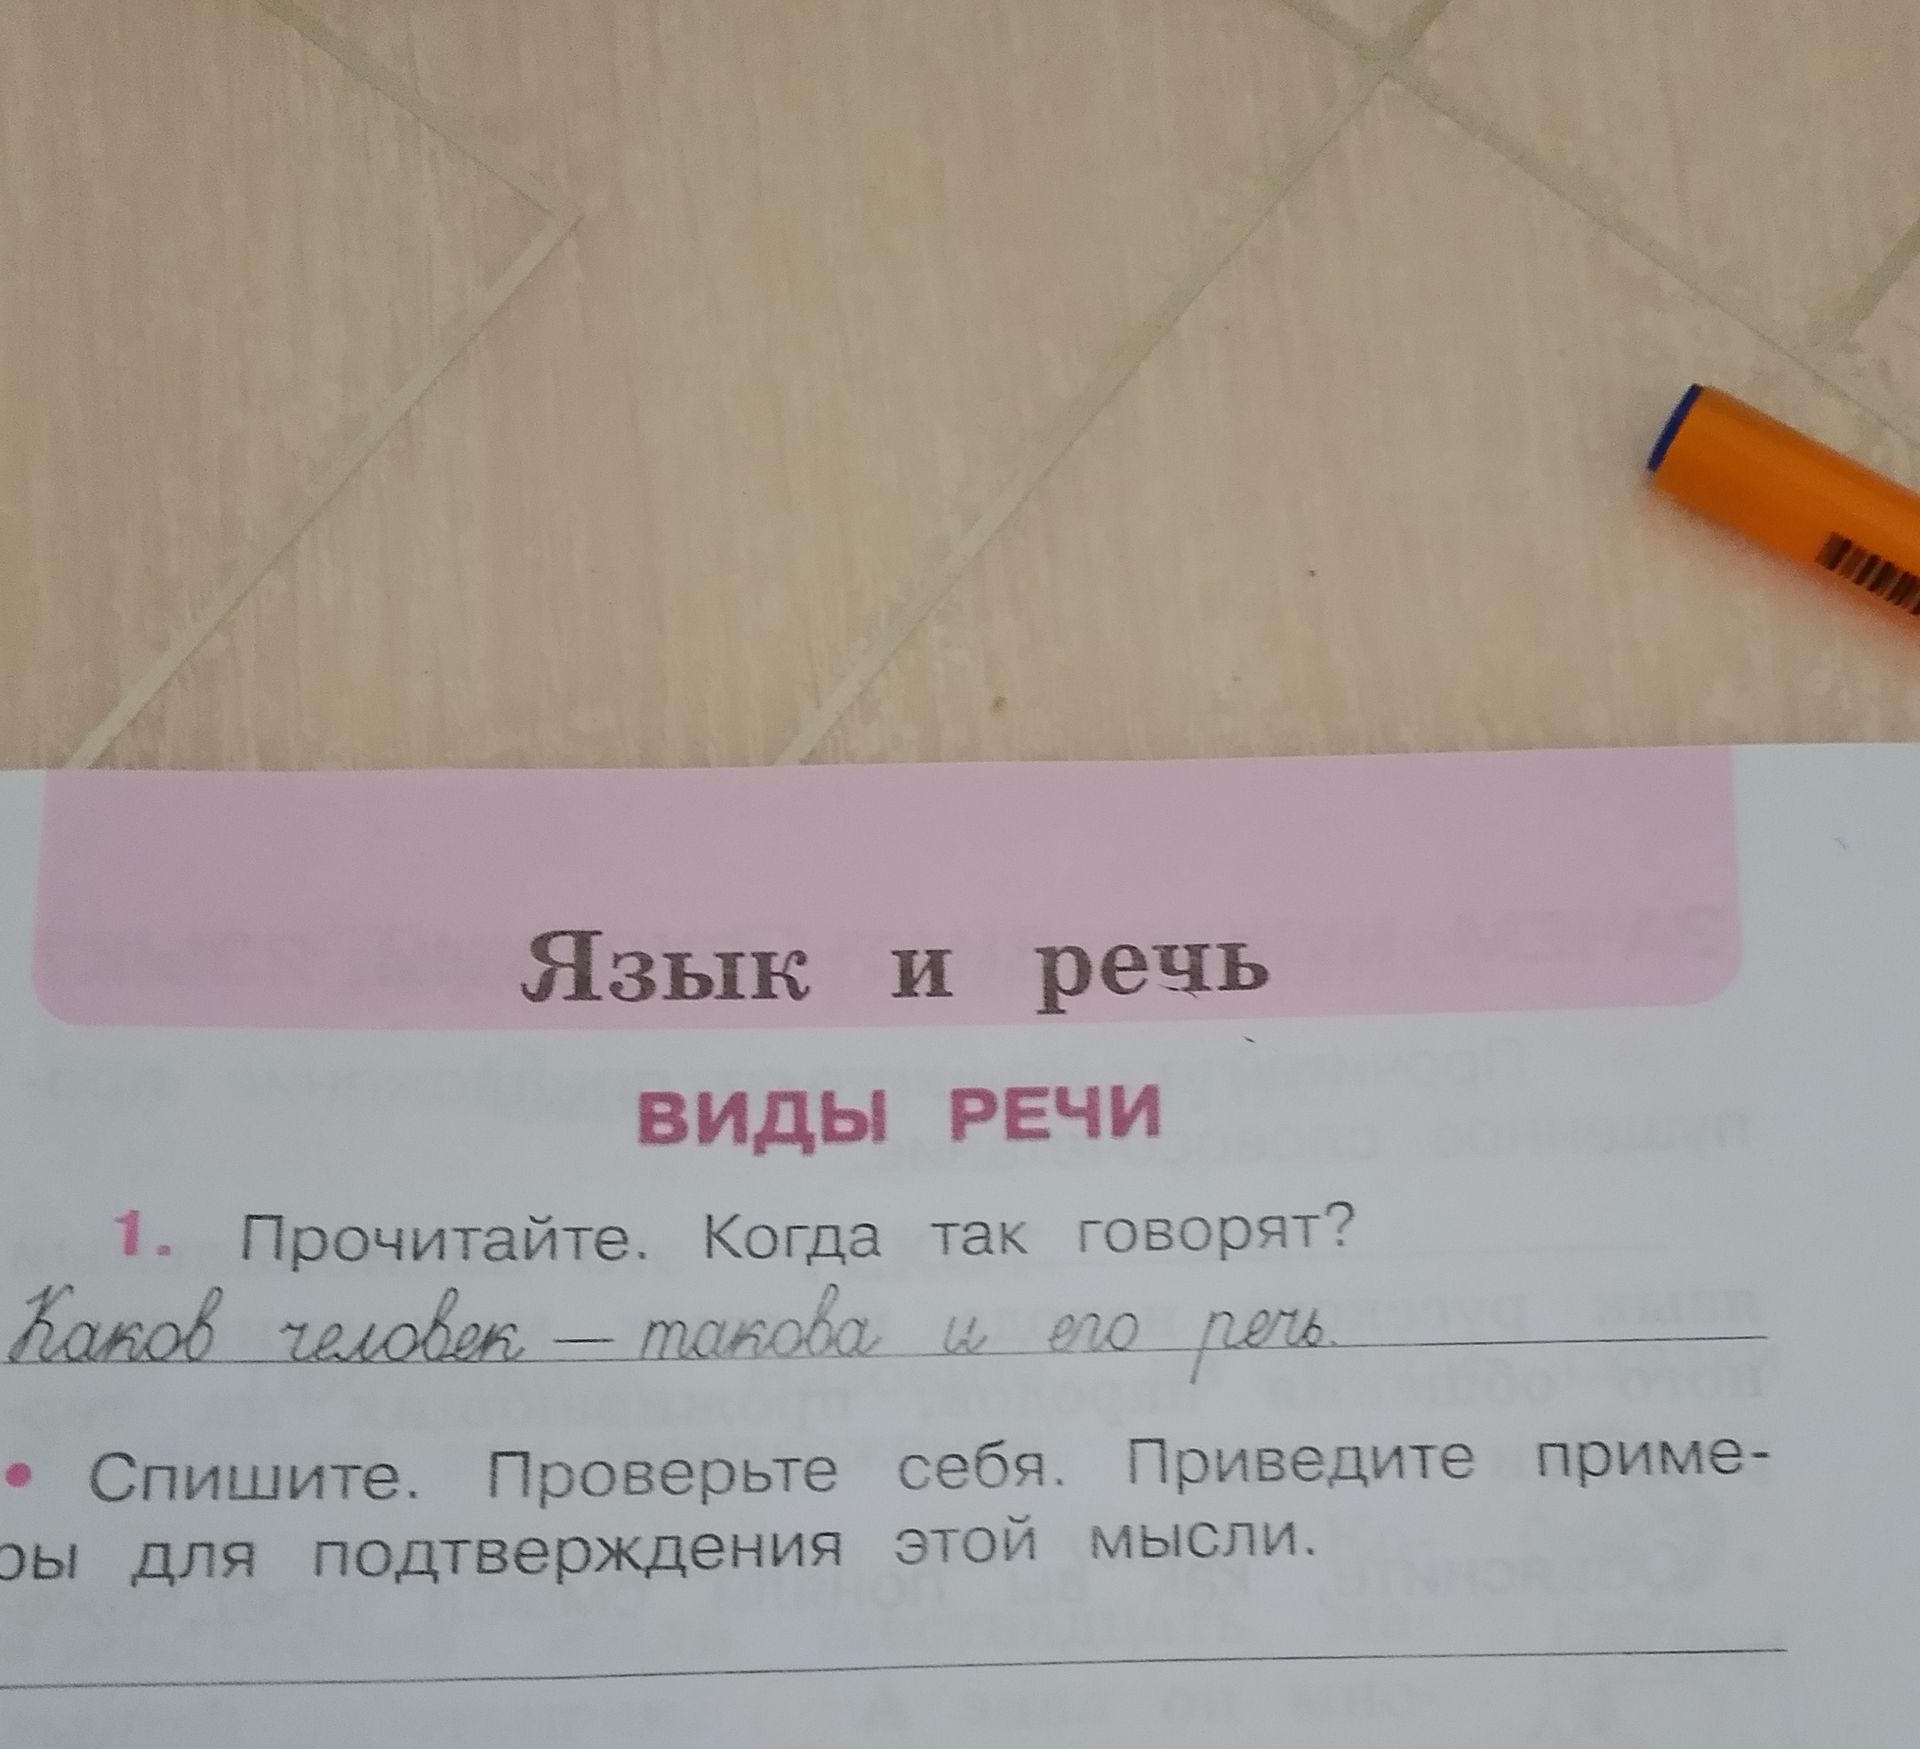 Язык и речь
ВИДЫ РЕЧИ
1. Прочитайте. Когда так говорят?
Каков человек — такова и его речь.
• Спишите. Проверьте себя. Приведите приме-
ры для подтверждения этой мысли.